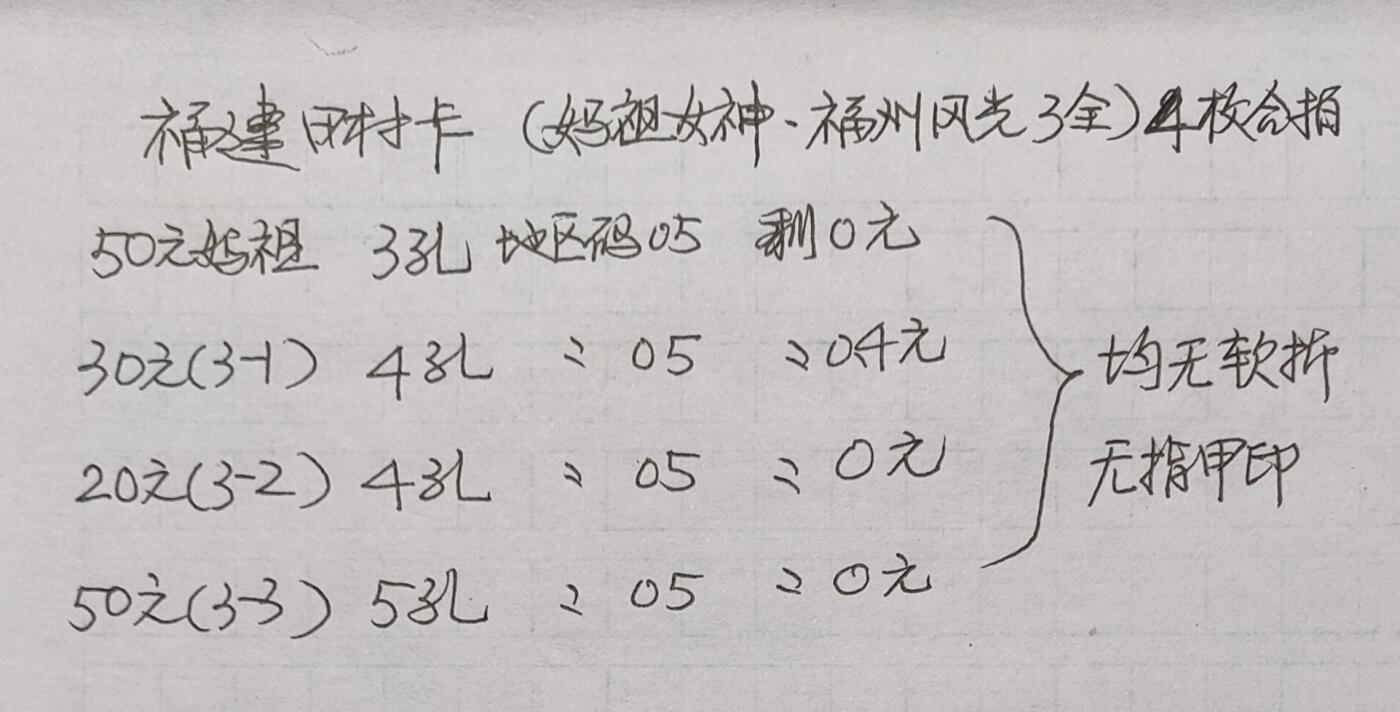 福建田村卡（妈祖女神、福州风光3全）4枚合拍
50元妈祖 3孔 地区码05 剩0元
30元(3-1) 4孔 〃 05 〃 0.4元
均无软折
20元(3-2) 4孔 〃 05 〃 0元
无指甲印
50元(3-3) 5孔 〃 05 〃 0元